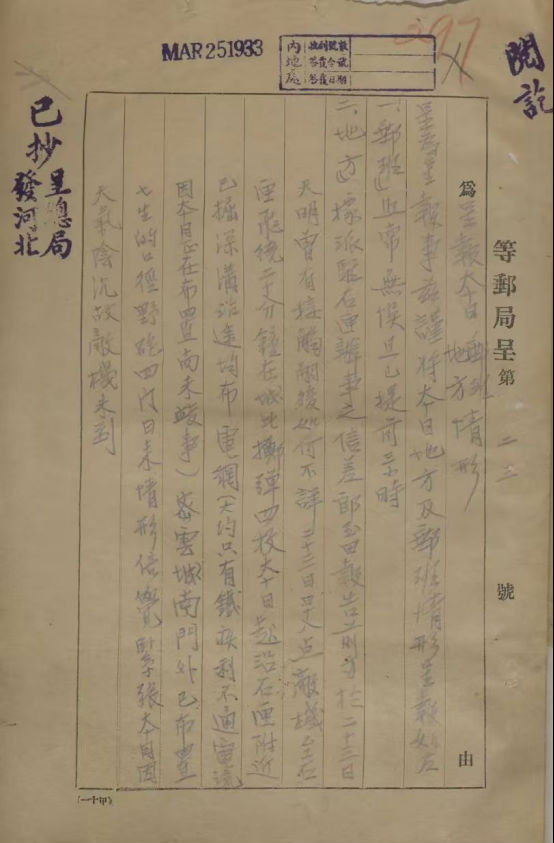 閱訖
MAR 25 1933
內地處
收到號數
答覆令號
答覆日期
397
等郵局呈第二三號
為呈報本日郵班地方情形由
呈為呈報事茲謹將本日地方及郵班情形呈報如左
一、「郵班」近常無悞且已提前
時
二、「地方」據派駐石匣辦事之信差邱玉田報告前方於二十三日
天明曾有接觸嗣後如何不詳二十三日早八点敵機至石
匣飛繞二十分鐘在城北擲彈四枚本日起沿石匣附近
已掘深溝沿途均布電網(大約只有鐵疾利不通電流
因本日正在布置尚未竣事)密雲城南門外已布置
七生的口徑野砲四門日來情形倍覺緊張本日因
天氣陰沉故敵機未到
已抄呈總局
發河北
(一十甲)